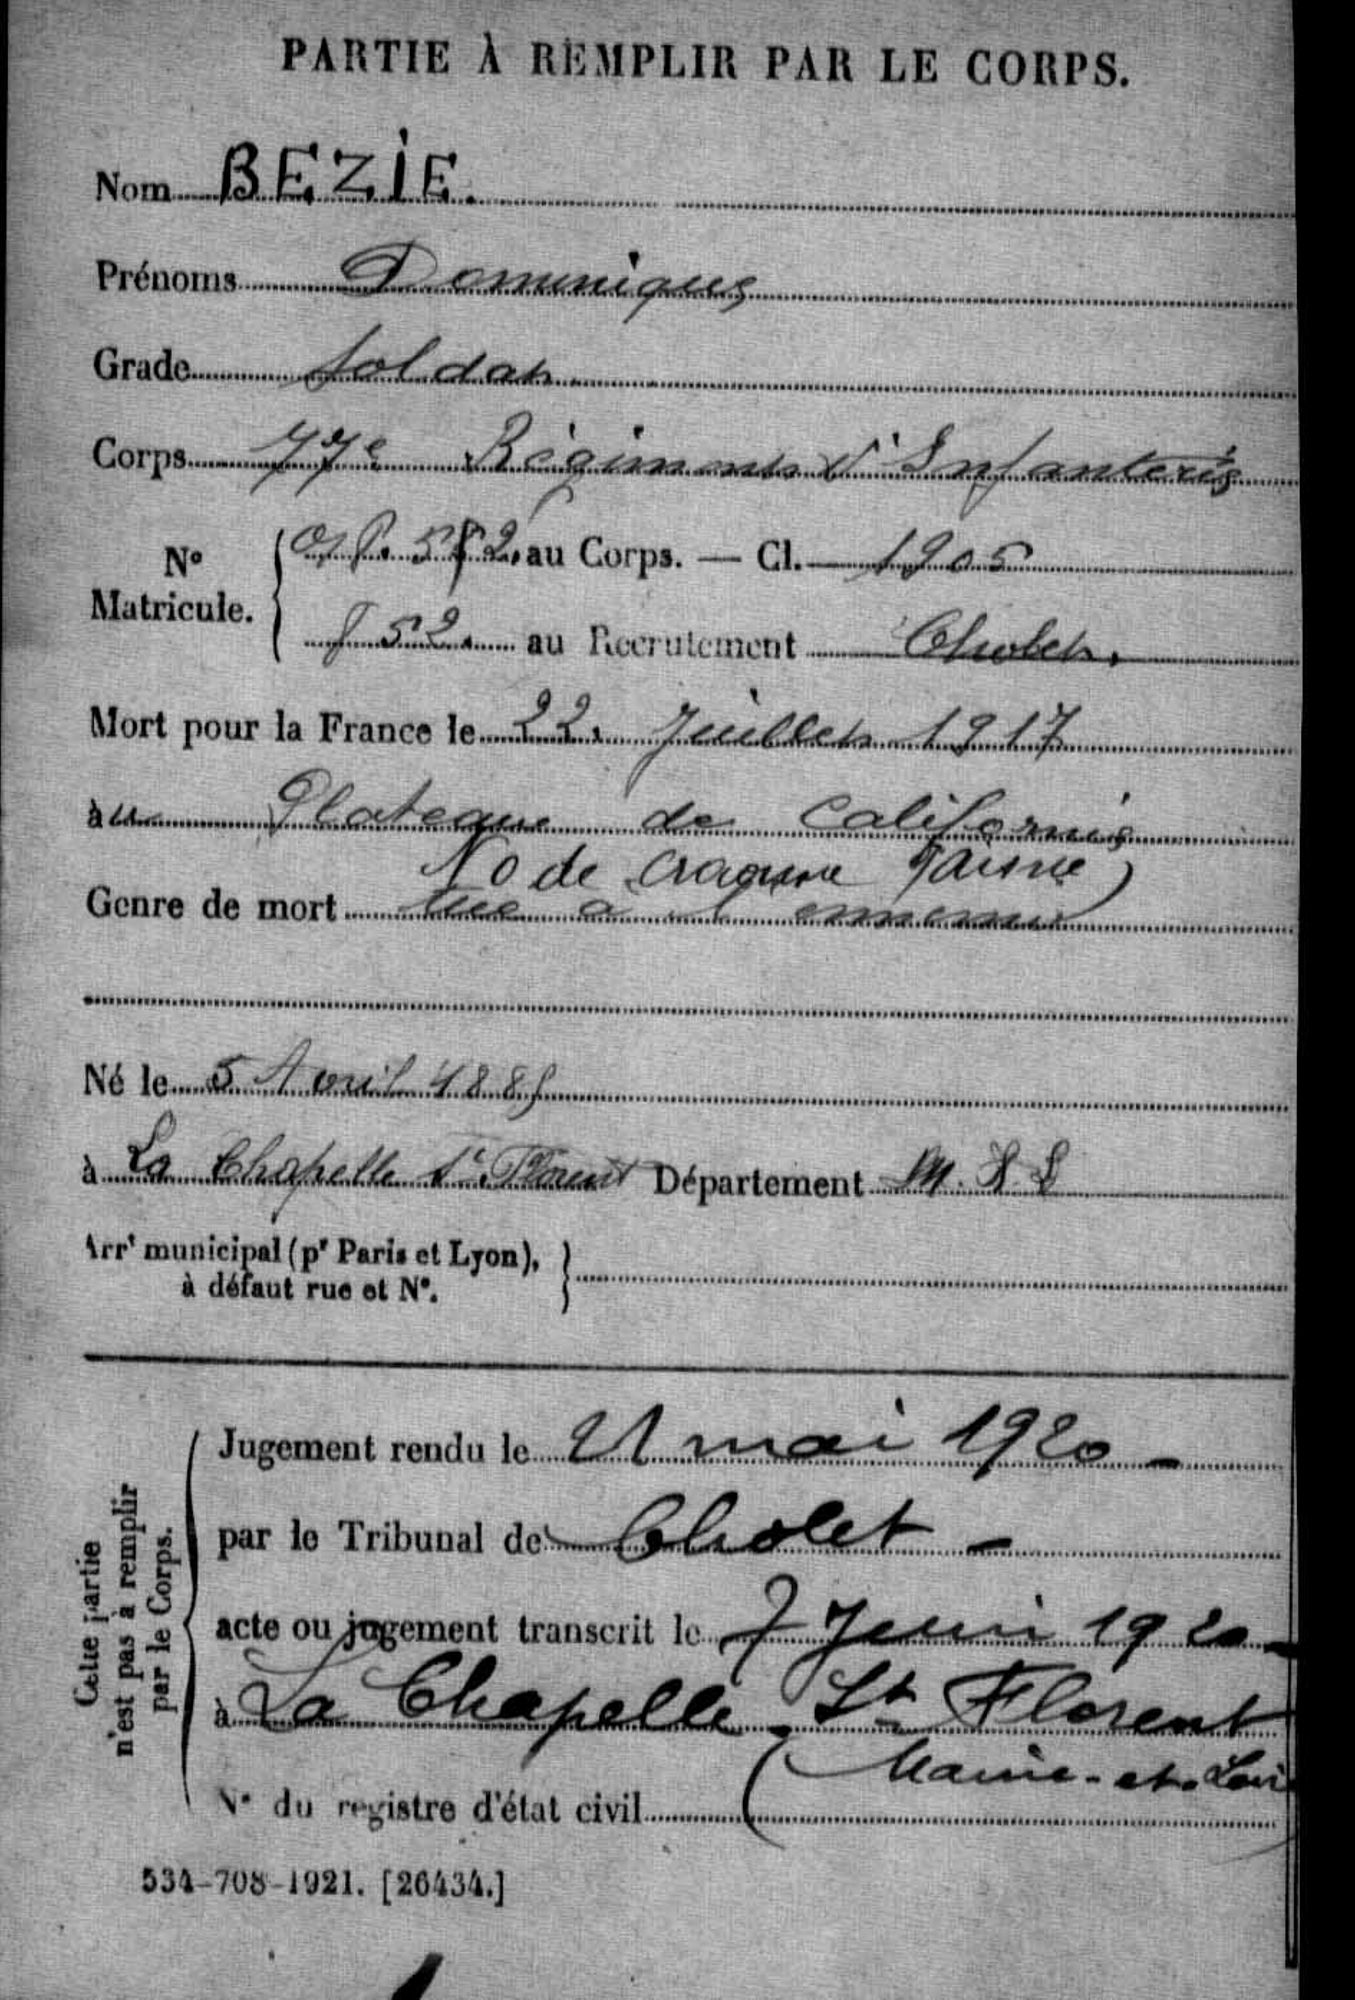 PARTIE À REMPLIR PAR LE CORPS.
Nom BEZIE.
Prénoms Dominique
Grade Soldat
Corps 77e Régiment d'Infanterie
No
Matricule.
au Corps. — Cl. 1905
852. au Recrutement Cholet.
Mort pour la France le 22. Juillet 1917
au Plateau de Californie
No de Craonne (Aisne)
Genre de mort tué à l'ennemi
Né le 5 Avril 1885
à La Chapelle St. Florent Département M. & L
Arrt municipal (pr Paris et Lyon),
à défaut rue et No.
Cette partie
n'est pas à remplir
par le Corps.
Jugement rendu le 21 mai 1920 -
par le Tribunal de Cholet -
acte ou jugement transcrit le 7 Juin 1920 -
à La Chapelle - St Florent
(Maine-et-Loire
No du registre d'état civil
534-708-1921. [26434.]